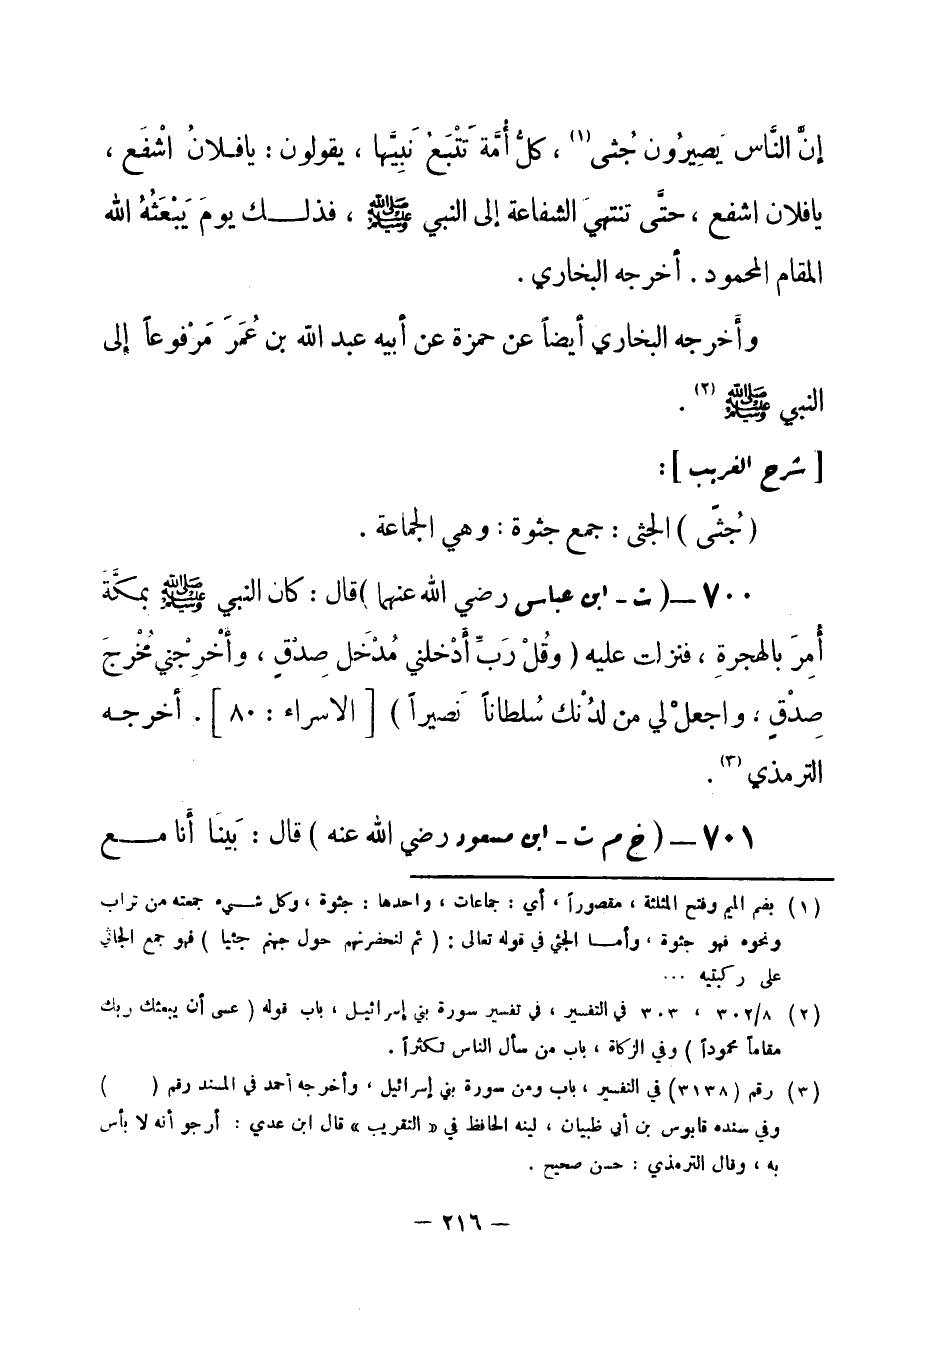 إنَّ النَّاس يَصِيرُون جُثى(١) ، كلُّ أُمَّة تَتْبَعُ نَبِيَّها ، يقولون : يافـلانُ اشْفَع ،
يافلان اشفع ، حتَّى تنتهيَ الشفاعة إلى النبي ﷺ ، فذلـــك يومَ يَبْعَثُهُ الله
المقام المحمود . أخرجه البخاري .
وأَخرجه البخاري أيضاً عن حمزة عن أبيه عبد الله بن عُمَرَ مَرْفوعاً إلى
النبي ﷺ (٢) .
[ شرح الغريب ] :
( جُثىً ) الجثى : جمع جثوة : وهي الجماعة .
٧٠٠ – ( ت - ابن عباس رضي الله عنهما ) قال : كان النبي ﷺ بمكَّةَ
أُمِرَ بالهجرةِ ، فنزلت عليه ( وقُلْ رَبِّ أَدْخلني مُدْخَل صِدْقٍ ، وأَخْرِجْني مُخْرجَ
صِدْقٍ ، واجعلْ لي من لدُنْك سُلطاناً نَصيراً ) [ الاسراء : ٨٠ ] . أخرجـه
الترمذي (٣) .
٧٠١ – ( خ م ت - ابن مسعود رضي الله عنه ) قال : بَينَا أَنا مــع
(١) بضم الميم وفتح المثلثة ، مقصوراً ، أي : جماعات ، واحدها : جثوة ، وكل شــيء جمعته من تراب
ونحوه فهو جثوة ، وأمــا الجثي في قوله تعالى : ( ثم لنحضرنهم حول جهنم جثيا ) فهو جمع الجاثي
على ركبتيه ...
(٢) ٣٠٢/٨ ، ٣٠٣ في التفسير ، في تفسير سورة بني إسرائيـل ، باب قوله ( عسى أن يبعثك ربك
مقاماً محموداً ) وفي الزكاة ، باب من سأل الناس تكثراً .
(٣) رقم ( ٣١٣٨ ) في التفسير ، باب ومن سورة بني إسرائيل ، وأخرجه أحمد في المسند رقم (      )
وفي سنده قابوس بن أبي ظبيان ، لينه الحافظ في « التقريب » قال ابن عدي : أرجو أنه لا بأس
به ، وقال الترمذي : حسن صحيح .
– ٢١٦ –